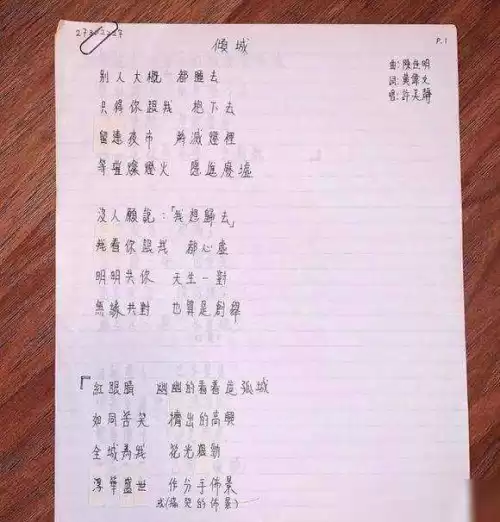 P.1
傾城
曲:陳佳明
詞:黃偉文
唱:許美靜
別人大概 都睡去
只得你跟我 抱下去
留連夜市 滅燈裡
等璀燦燈火 隱進廢墟
沒人願說:「我想歸去」
我看你跟我 都心虛
明明共你 天生一對
無緣共對 也算是創舉
「紅眼睛 幽幽的看着這孤城
如同苦笑 擠出的高興
全城為我 花光狠勁
浮華盛世 作分手佈景
或(痛哭的佈景)